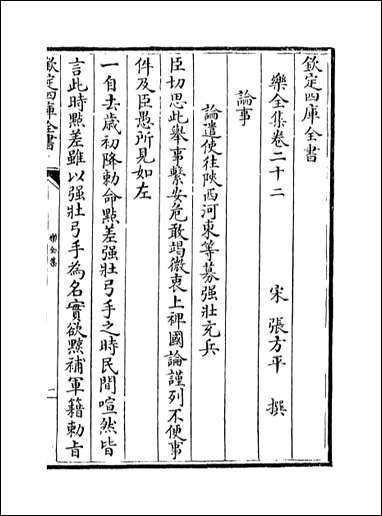 欽定四庫全書
樂全集卷二十二
宋 張方平 撰
論事
論遣使往陜西河東等募强壯充兵
臣切思此舉事繫安危敢竭微衷上裨國論謹列不便事
件及臣愚所見如左
一自去歲初降勅命㸃差强壯弓手之時民間喧然皆
言此時㸃差雖以强壯弓手為名實欲㸃補軍籍勅旨
欽定四庫全書
樂全集